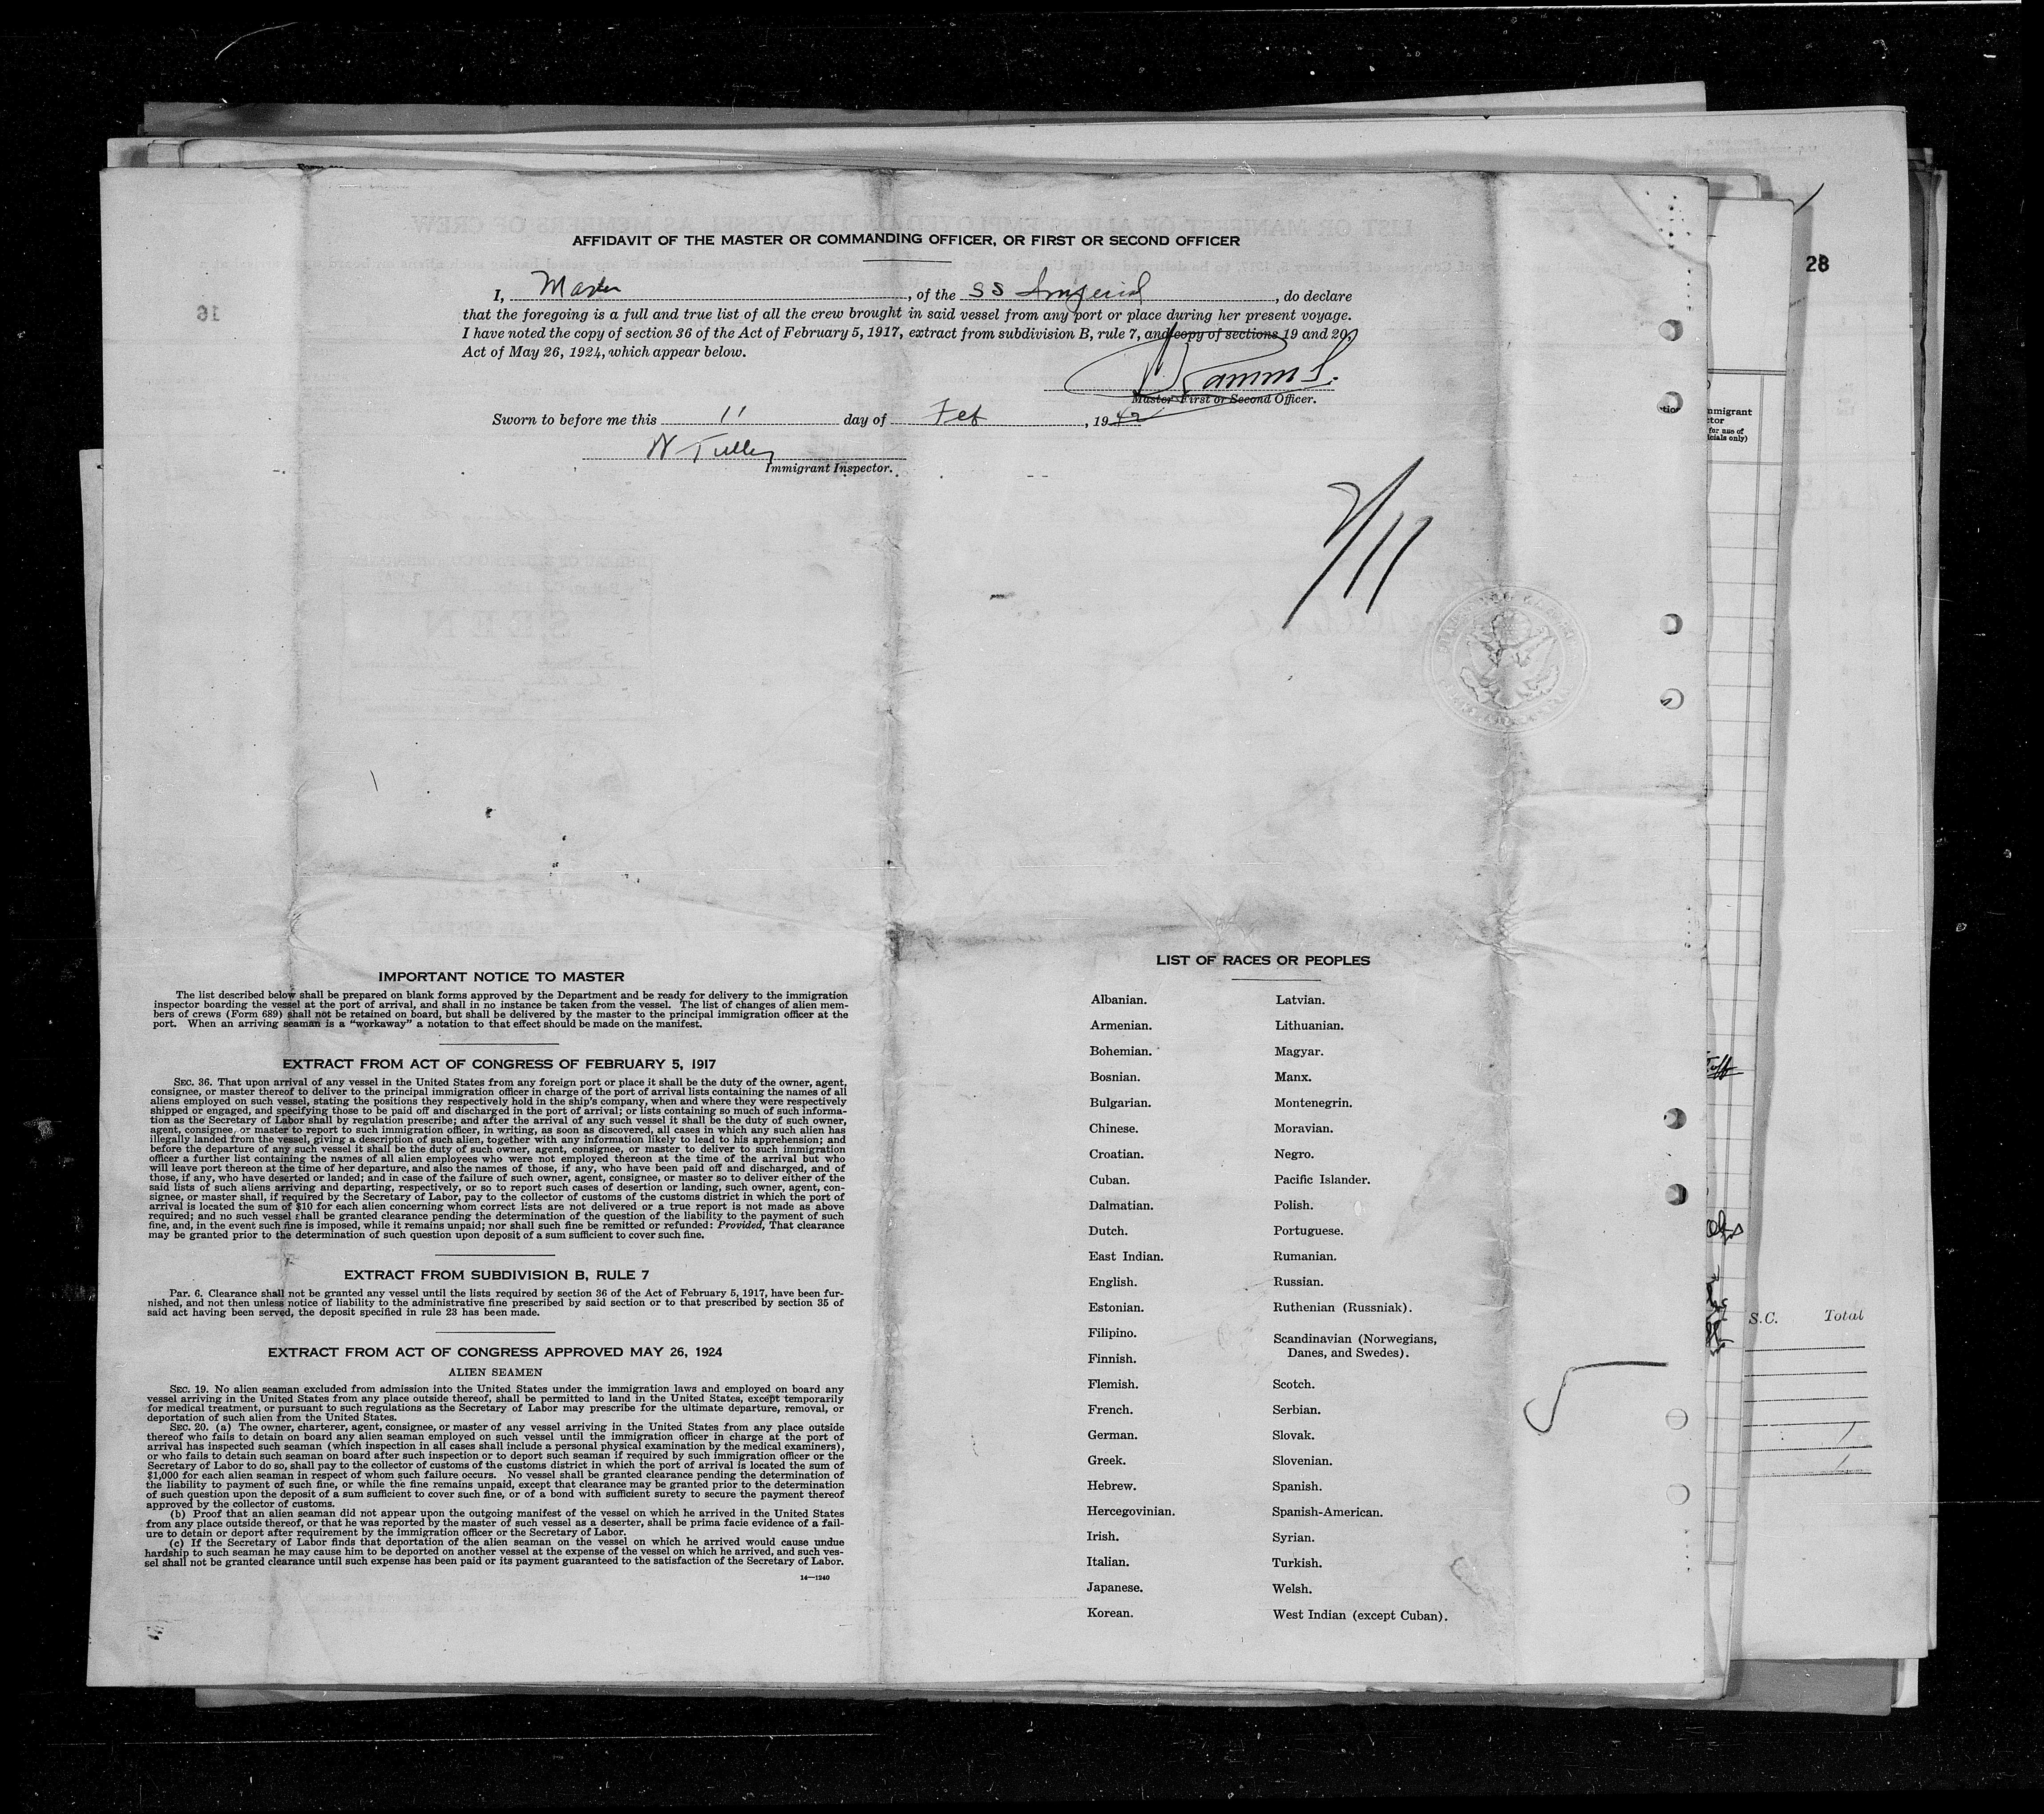 AFFIDAVIT OF THE MASTER OR COMMANDING OFFICER, OR FIRST OR SECOND OFFICER
I, Master, of the SS Imperial, do declare
that the foregoing is a full and true list of all the crew brought in said vessel from any port or place during her present voyage.
I have noted the copy of section 36 of the Act of February 5, 1917, extract from subdivision B, rule 7, and copy of sections 19 and 20,
Act of May 26, 1924, which appear below.
Master First or Second Officer.
Sworn to before me this 11 day of Feb, 1942
W Tulley
Immigrant Inspector.
2/11
28
16
IMPORTANT NOTICE TO MASTER
The list described below shall be prepared on blank forms approved by the Department and be ready for delivery to the immigration
inspector boarding the vessel at the port of arrival, and shall in no instance be taken from the vessel. The list of changes of alien mem-
bers of crews (Form 689) shall not be retained on board, but shall be delivered by the master to the principal immigration officer at the
port. When an arriving seaman is a "workaway" a notation to that effect should be made on the manifest.
EXTRACT FROM ACT OF CONGRESS OF FEBRUARY 5, 1917
SEC. 36. That upon arrival of any vessel in the United States from any foreign port or place it shall be the duty of the owner, agent,
consignee, or master thereof to deliver to the principal immigration officer in charge of the port of arrival lists containing the names of all
aliens employed on such vessel, stating the positions they respectively hold in the ship's company, when and where they were respectively
shipped or engaged, and specifying those to be paid off and discharged in the port of arrival; or lists containing so much of such informa-
tion as the Secretary of Labor shall by regulation prescribe; and after the arrival of any such vessel it shall be the duty of such owner,
agent, consignee, or master to report to such immigration officer, in writing, as soon as discovered, all cases in which any such alien has
illegally landed from the vessel, giving a description of such alien, together with any information likely to lead to his apprehension; and
before the departure of any such vessel it shall be the duty of such owner, agent, consignee, or master to deliver to such immigration
officer a further list containing the names of all alien employees who were not employed thereon at the time of the arrival but who
will leave port thereon at the time of her departure, and also the names of those, if any, who have been paid off and discharged, and of
those, if any, who have deserted or landed; and in case of the failure of such owner, agent, consignee, or master so to deliver either of the
said lists of such aliens arriving and departing, respectively, or so to report such cases of desertion or landing, such owner, agent, con-
signee, or master shall, if required by the Secretary of Labor, pay to the collector of customs of the customs district in which the port of
arrival is located the sum of $10 for each alien concerning whom correct lists are not delivered or a true report is not made as above
required; and no such vessel shall be granted clearance pending the determination of the question of the liability to the payment of such
fine, and, in the event such fine is imposed, while it remains unpaid; nor shall such fine be remitted or refunded: Provided, That clearance
may be granted prior to the determination of such question upon deposit of a sum sufficient to cover such fine.
EXTRACT FROM SUBDIVISION B, RULE 7
Par. 6. Clearance shall not be granted any vessel until the lists required by section 36 of the Act of February 5, 1917, have been fur-
nished, and not then unless notice of liability to the administrative fine prescribed by said section or to that prescribed by section 35 of
said act having been served, the deposit specified in rule 23 has been made.
EXTRACT FROM ACT OF CONGRESS APPROVED MAY 26, 1924
ALIEN SEAMEN
SEC. 19. No alien seaman excluded from admission into the United States under the immigration laws and employed on board any
vessel arriving in the United States from any place outside thereof, shall be permitted to land in the United States, except temporarily
for medical treatment, or pursuant to such regulations as the Secretary of Labor may prescribe for the ultimate departure, removal, or
deportation of such alien from the United States.
SEC. 20. (a) The owner, charterer, agent, consignee, or master of any vessel arriving in the United States from any place outside
thereof who fails to detain on board any alien seaman employed on such vessel until the immigration officer in charge at the port of
arrival has inspected such seaman (which inspection in all cases shall include a personal physical examination by the medical examiners),
or who fails to detain such seaman on board after such inspection or to deport such seaman if required by such immigration officer or the
Secretary of Labor to do so, shall pay to the collector of customs of the customs district in which the port of arrival is located the sum of
$1,000 for each alien seaman in respect of whom such failure occurs. No vessel shall be granted clearance pending the determination of
the liability to payment of such fine, or while the fine remains unpaid, except that clearance may be granted prior to the determination
of such question upon the deposit of a sum sufficient to cover such fine, or of a bond with sufficient surety to secure the payment thereof
approved by the collector of customs.
(b) Proof that an alien seaman did not appear upon the outgoing manifest of the vessel on which he arrived in the United States
from any place outside thereof, or that he was reported by the master of such vessel as a deserter, shall be prima facie evidence of a fail-
ure to detain or deport after requirement by the immigration officer or the Secretary of Labor.
(c) If the Secretary of Labor finds that deportation of the alien seaman on the vessel on which he arrived would cause undue
hardship to such seaman he may cause him to be deported on another vessel at the expense of the vessel on which he arrived, and such ves-
sel shall not be granted clearance until such expense has been paid or its payment guaranteed to the satisfaction of the Secretary of Labor.
14—1240
LIST OF RACES OR PEOPLES
Albanian.
Armenian.
Bohemian.
Bosnian.
Bulgarian.
Chinese.
Croatian.
Cuban.
Dalmatian.
Dutch.
East Indian.
English.
Estonian.
Filipino.
Finnish.
Flemish.
French.
German.
Greek.
Hebrew.
Hercegovinian.
Irish.
Italian.
Japanese.
Korean.
Latvian.
Lithuanian.
Magyar.
Manx.
Montenegrin.
Moravian.
Negro.
Pacific Islander.
Polish.
Portuguese.
Rumanian.
Russian.
Ruthenian (Russniak).
Scandinavian (Norwegians,
Danes, and Swedes).
Scotch.
Serbian.
Slovak.
Slovenian.
Spanish.
Spanish-American.
Syrian.
Turkish.
Welsh.
West Indian (except Cuban).
S.C. Total